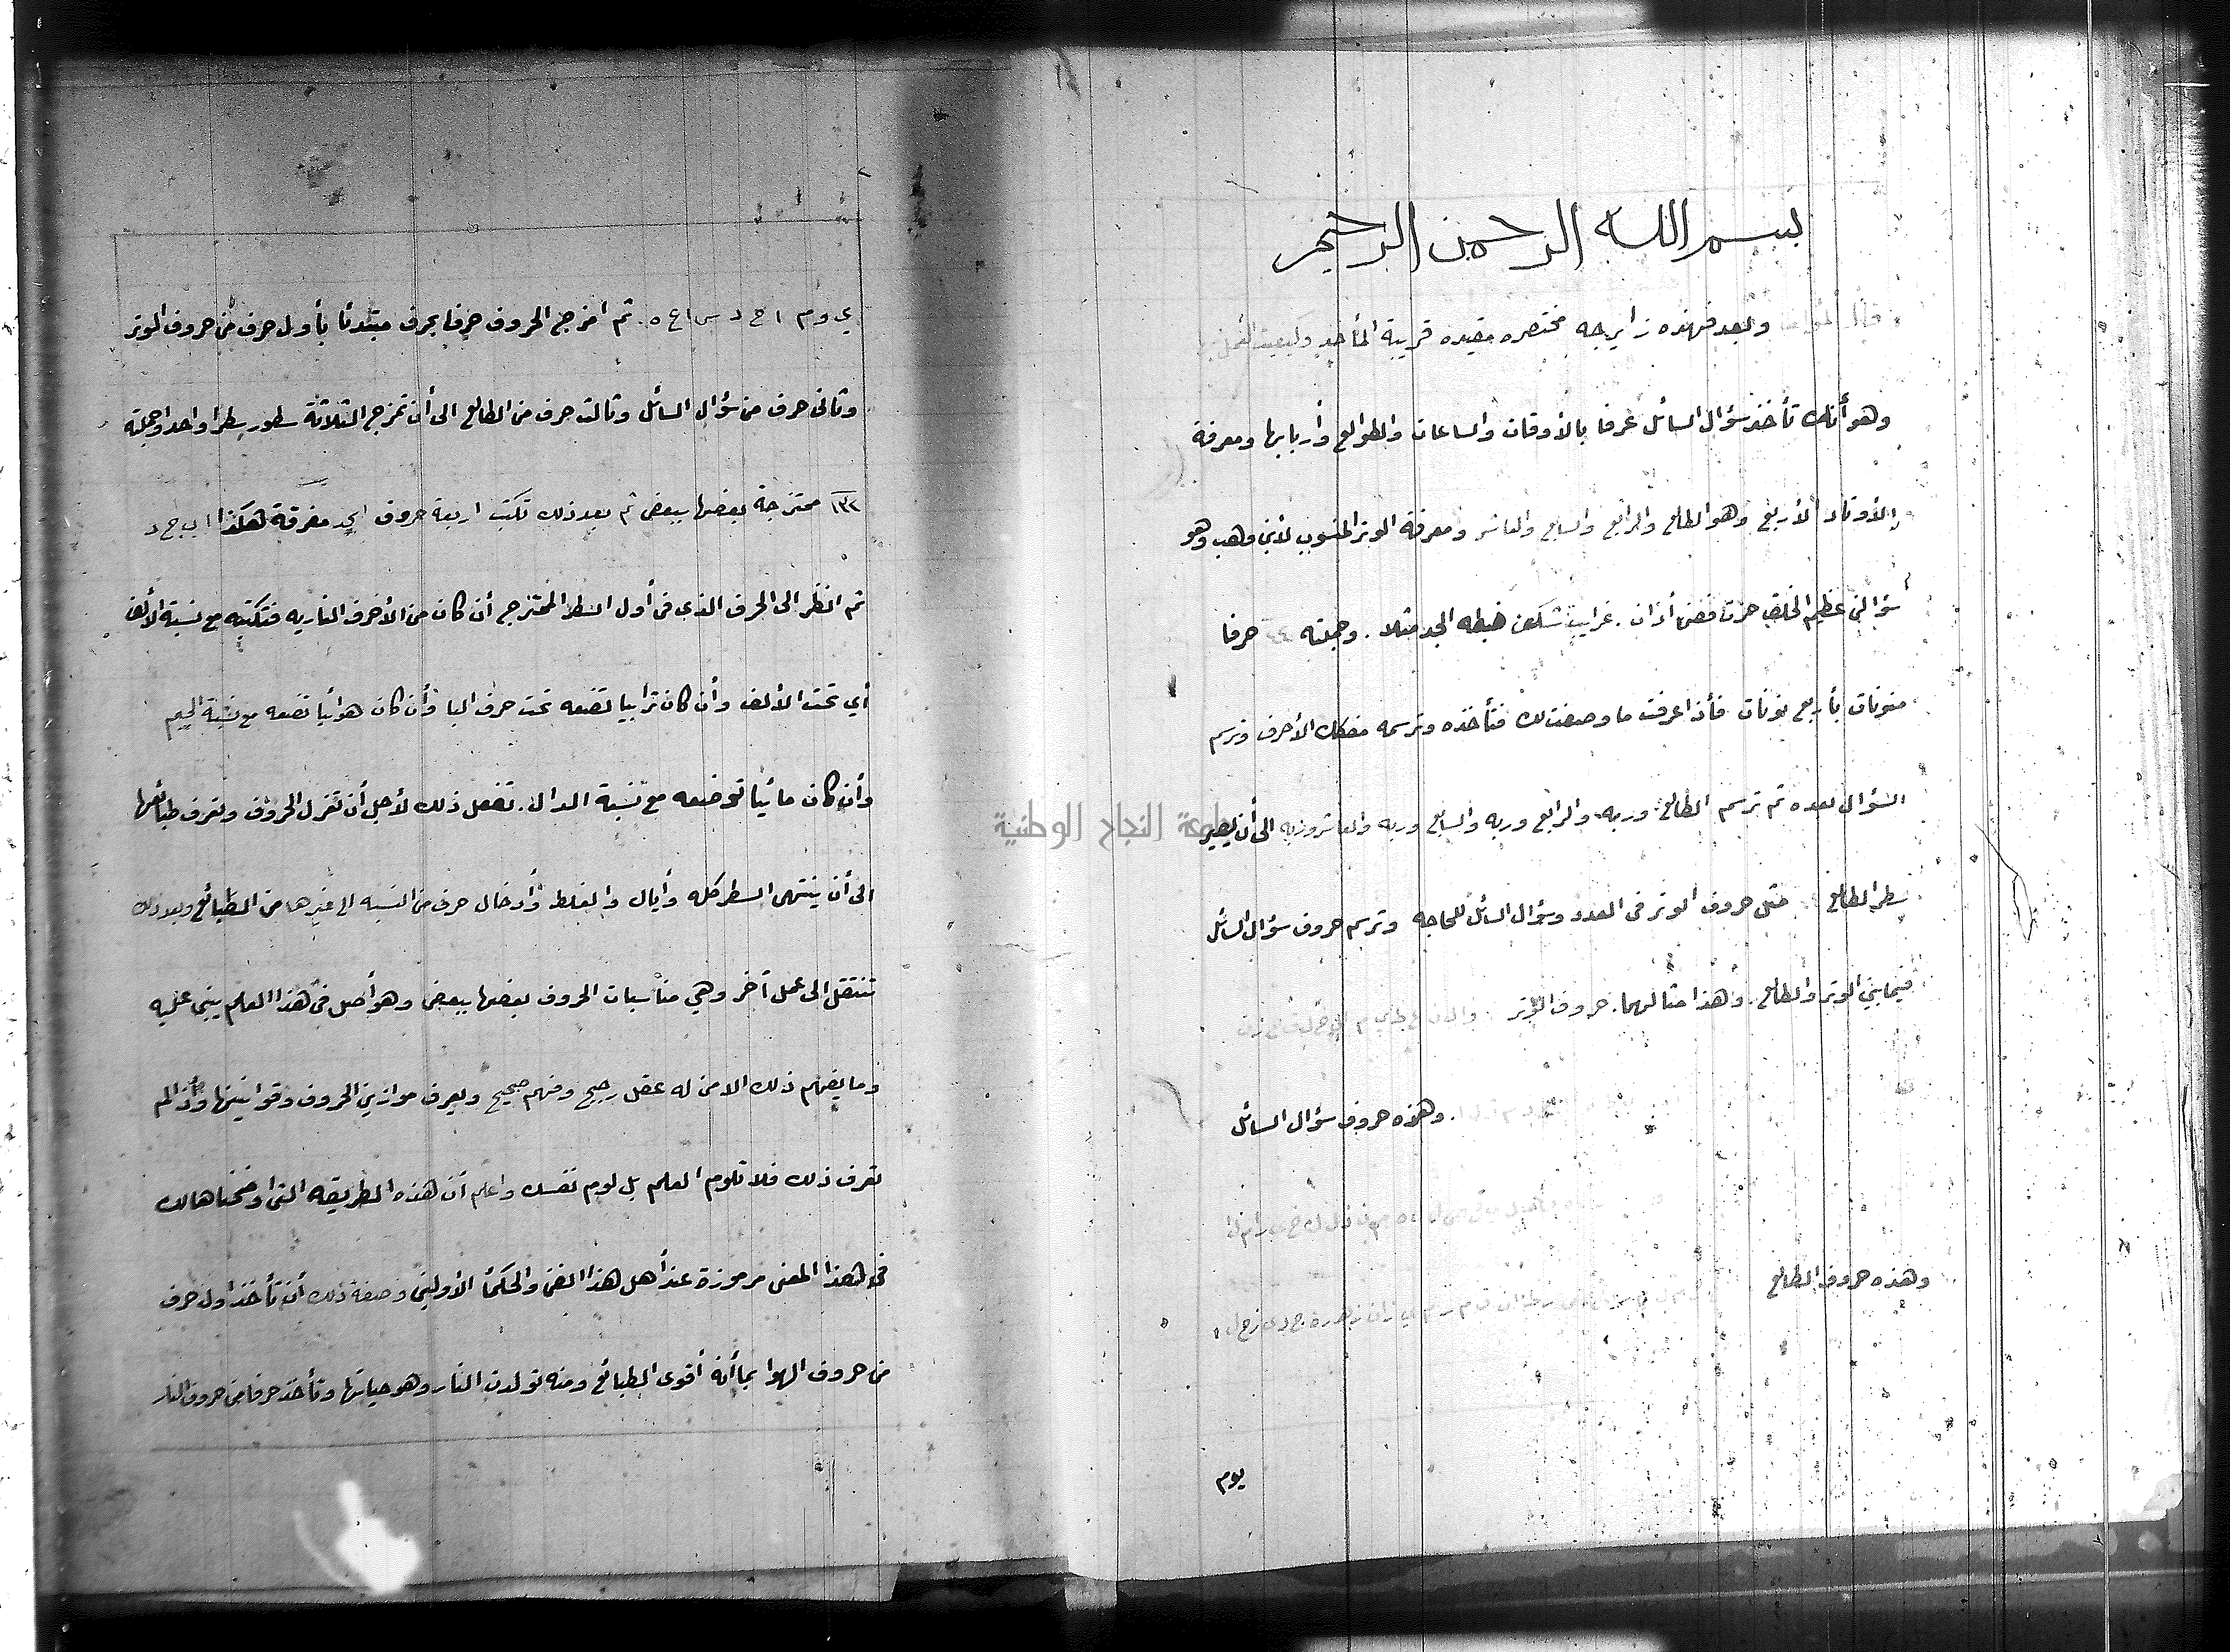 بسم الله الرحمن الرحيم
وبعد فهذه زايرجه مختصره مفيده قريبة المأخذ وكيفية العمل
وهو أنك تأخذ سؤال السائل عرفا بالأوقات والساعات والطوالع وأربابها ومعرفة
الأوتاد الأربع وهو الطالع والرابع والسابع والعاشر ومعرفة الوتر المنسوب لأبن وهب وهو
سؤال عظيم الخلق حزت فصن أذان . غرايب شك ضبطه الجد مثلا . وجملته ٤٤ حرفا
منونات بأربع نونات فأذا عرفت ما وصفت لك فتأخذه وترسمه مفكك الأحرف وترسم
السؤال بعده ثم ترسم الطالع وربه والرابع وربه والسابع وربه والعاشر وربه الى أن يصير
سطر الطالع مثل حروف الوتر فى العدد وسؤال السائل للحاجه وترسم حروف سؤال السائل
فيما بين الوتر والطالع . وهذا مثالهما . حروف الوتر
وهذه حروف سؤال السائل
وهذه حروف الطالع
يوم
ي و م ا ح د س ا ع ه . ثم امزج الحروف حرفا بحرف مبتدئا بأول حرف من حروف الوتر
وثانى حرف من سؤال السائل وثالث حرف من الطالع الى أن تمزج الثلاثة سطور سطرا واحد وجملته
١٣٢ ممتزجة بعضها ببعض ثم بعد ذلك تكتب اربعة حروف ابجد مفرقة هكذا ا ب ج د
ثم انظر الى الحرف الذى فى أول السطر الممتزج أن كان من الأحرف الناريه فتكتبه مع نسبة الألف
أي تحت الألف وأن كان ترابيا تضعه تحت حرف البا وأن كان هوائيا تضعه مع نسبة الجيم
وأن كان مائيا توضعه مع نسبة الدال . تفعل ذلك لأجل أن تعزل الحروف وتعرف طبائعها
الى أن ينتهى السطر كله وأياك والغلط وأدخال حرف من النسبه الى غيرها من الطبائع وبعد ذلك
تنتقل الى عمل آخر وهي مناسبات الحروف بعضها ببعض وهو أصل فى هذا العلم يبنى عليه
وما يفهم ذلك الا من له عقل رجيح وفهم صحيح ويعرف موازين الحروف وقوانينها وأذا لم
تعرف ذلك فلا تلوم العلم بل لوم نفسك واعلم أن هذه الطريقه التى اوضحناها لك
فى هذا المعنى مرموزة عند أهل هذا الفن والحكمأ الأولين وصفة ذلك أن تأخذ اول حرف
من حروف الهوا بما أنه أقوى الطبائع ومنه تولدت النار وهو حياتها وتأخذ حرفا من حروف النار
جامعة النجاح الوطنية